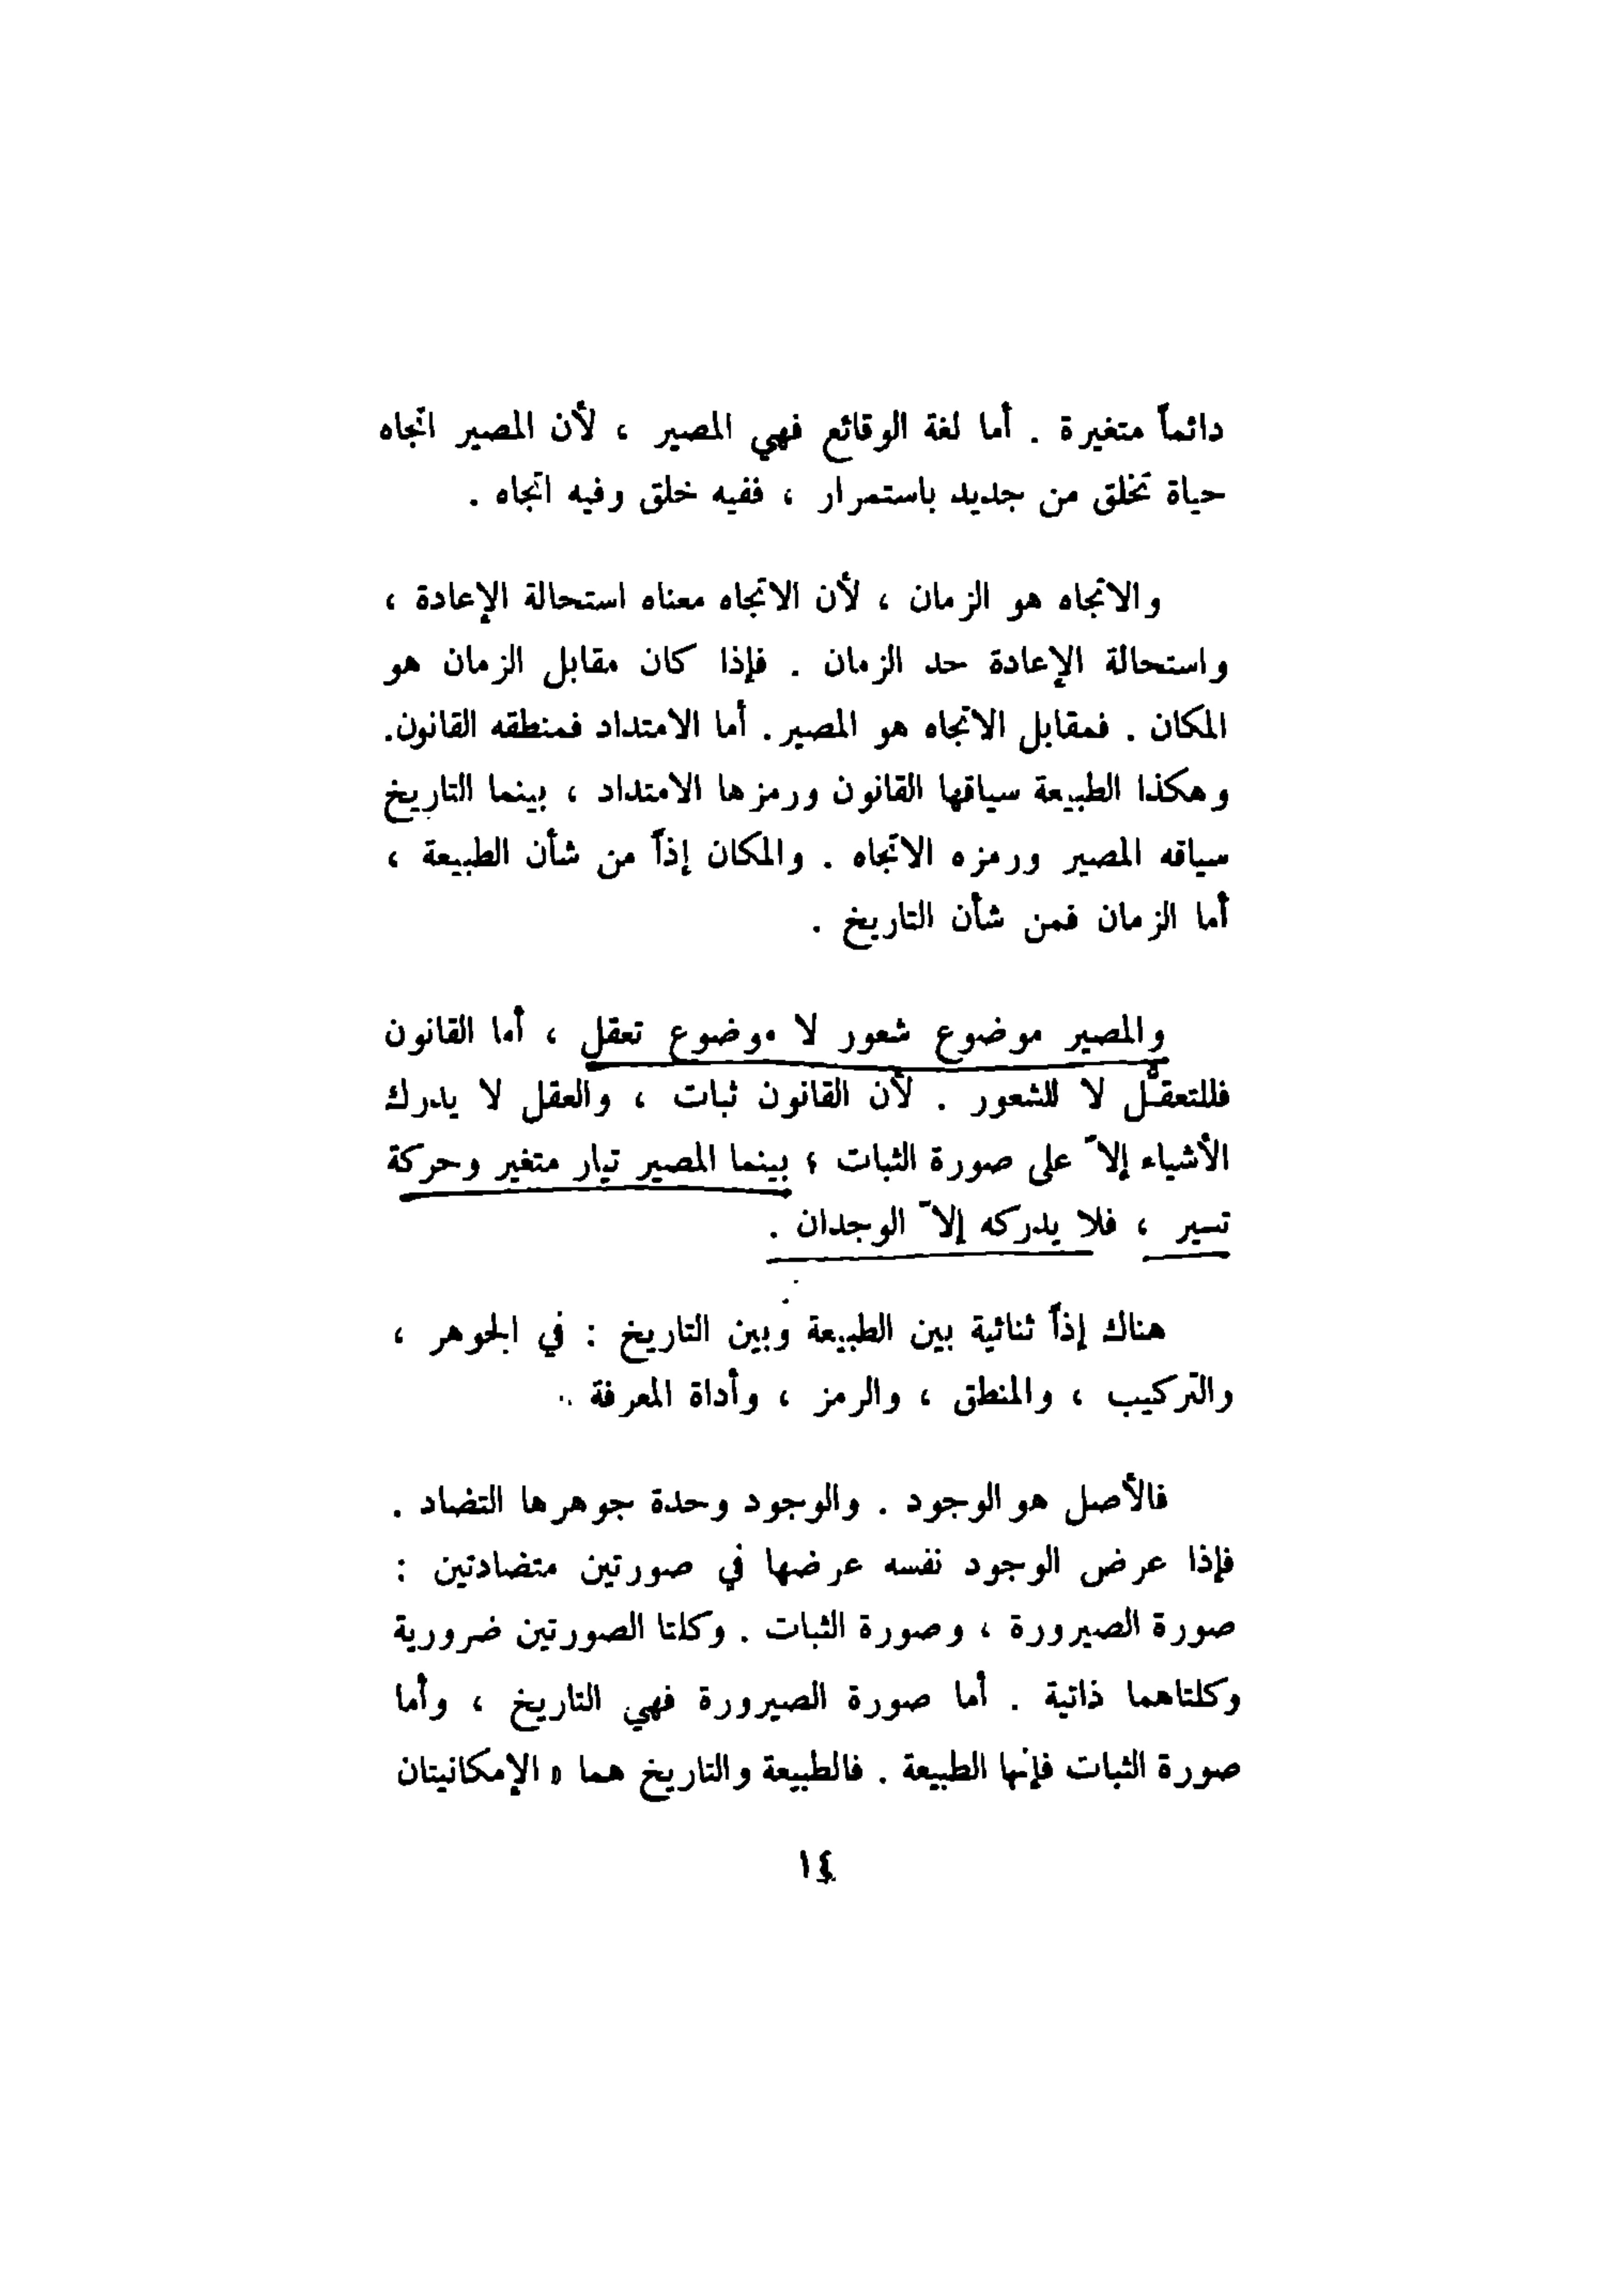 دائماً متغيرة . أما لغة الوقائع فهي المصير ، لأن المصير اتجاه
حياة تخلق من جديد باستمرار ، ففيه خلق وفيه اتجاه .
والاتجاه هو الزمان ، لأن الاتجاه معناه استحالة الإعادة ،
واستحالة الإعادة حد الزمان . فإذا كان مقابل الزمان هو
المكان . فمقابل الاتجاه هو المصير . أما الامتداد فمنطقه القانون.
وهكذا الطبيعة سياقها القانون ورمزها الامتداد ، بينما التاريخ
سياقه المصير ورمزه الاتجاه . والمكان إذاً من شأن الطبيعة ،
أما الزمان فمن شأن التاريخ .
والمصير موضوع شعور لا موضوع تعقل ، أما القانون
فللتعقُّل لا للشعور . لأن القانون ثبات ، والعقل لا يدرك
الأشياء إلاّ على صورة الثبات ؛ بينما المصير تيار متغير وحركة
تسير ، فلا يدركه إلاّ الوجدان .
هناك إذاً ثنائية بين الطبيعة وبين التاريخ : في الجوهر ،
والتركيب ، والمنطق ، والرمز ، وأداة المعرفة .
فالأصل هو الوجود . والوجود وحدة جوهرها التضاد .
فإذا عرض الوجود نفسه عرضها في صورتين متضادتين :
صورة الصيرورة ، وصورة الثبات . وكلتا الصورتين ضرورية
وكلتاهما ذاتية . أما صورة الصيرورة فهي التاريخ ، وأما
صورة الثبات فإنها الطبيعة . فالطبيعة والتاريخ هما « الإمكانيتان
١٤